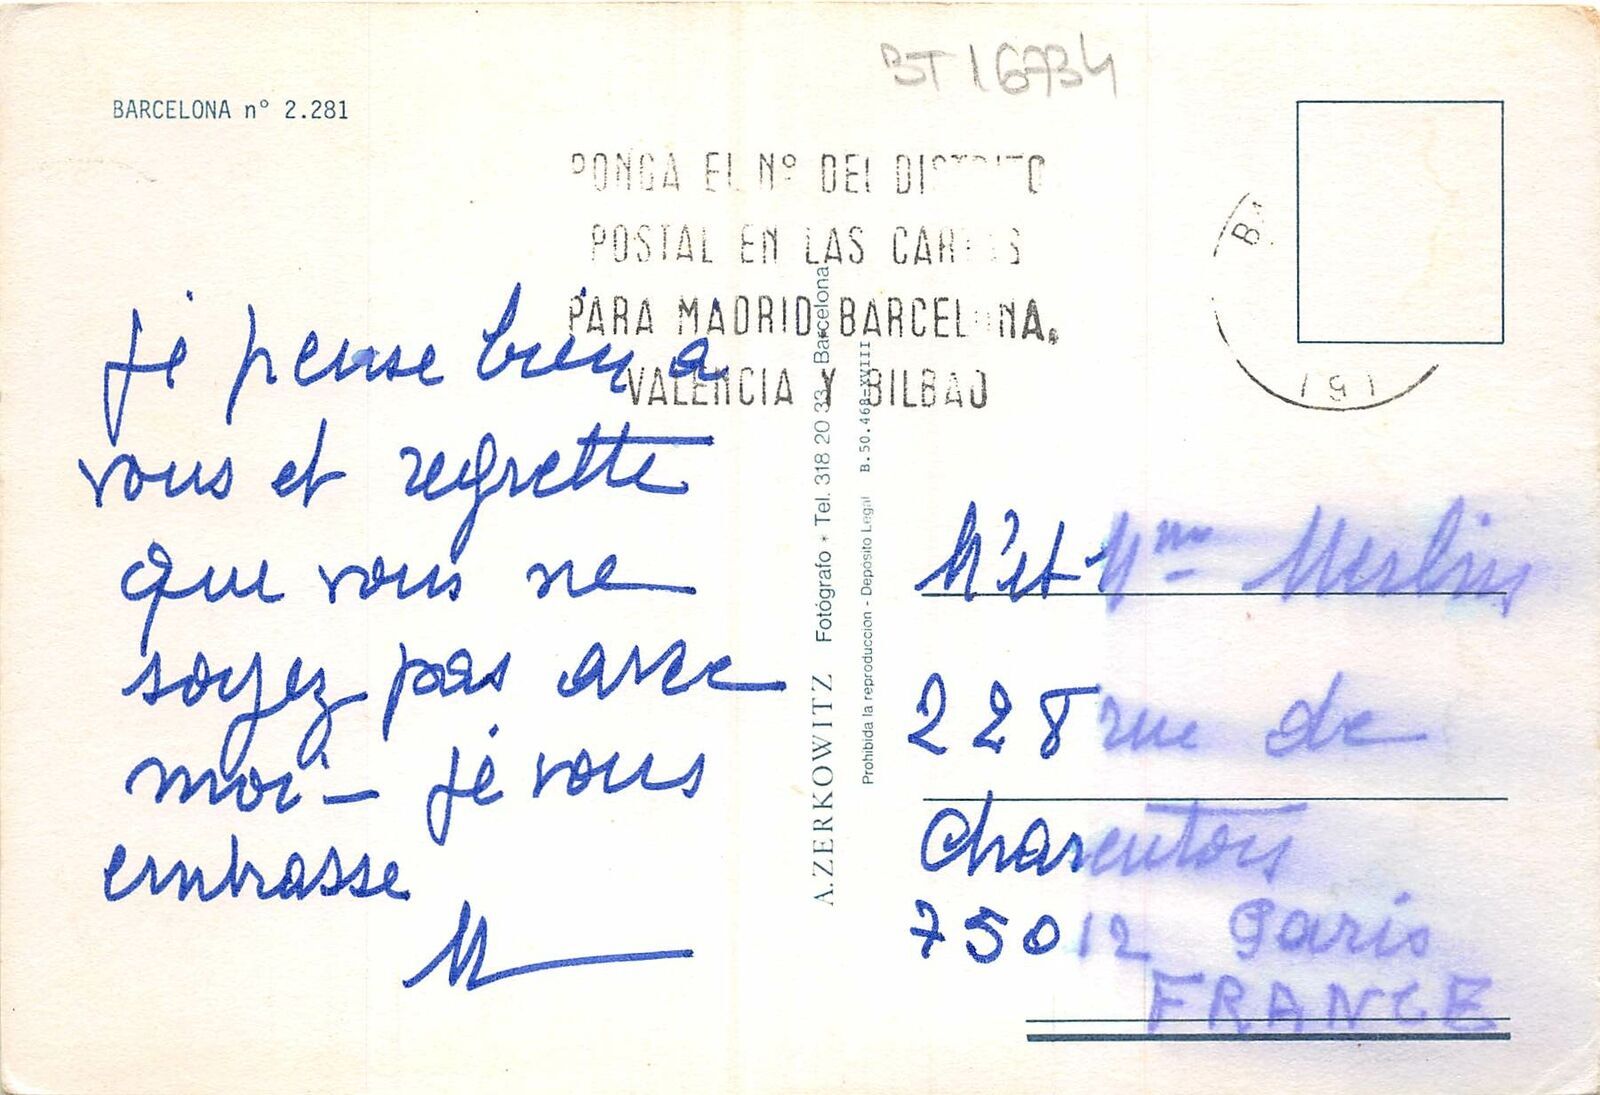 BT 16734
BARCELONA nº 2.281
PONGA EL Nº DEL DISTRITO
POSTAL EN LAS CARTAS
PARA MADRID, BARCELONA,
VALENCIA Y BILBAO
je pense bien a
vous et regrette
que vous ne
soyez pas avec
moi — je vous
embrasse
A. ZERKOWITZ Fotógrafo * Tel. 318 20 33 Barcelona
Prohibida la reproduccion - Deposito Legal B. 50.468-XVIII
M et Mme
228 rue de
Charenton
75012 Paris
FRANCE